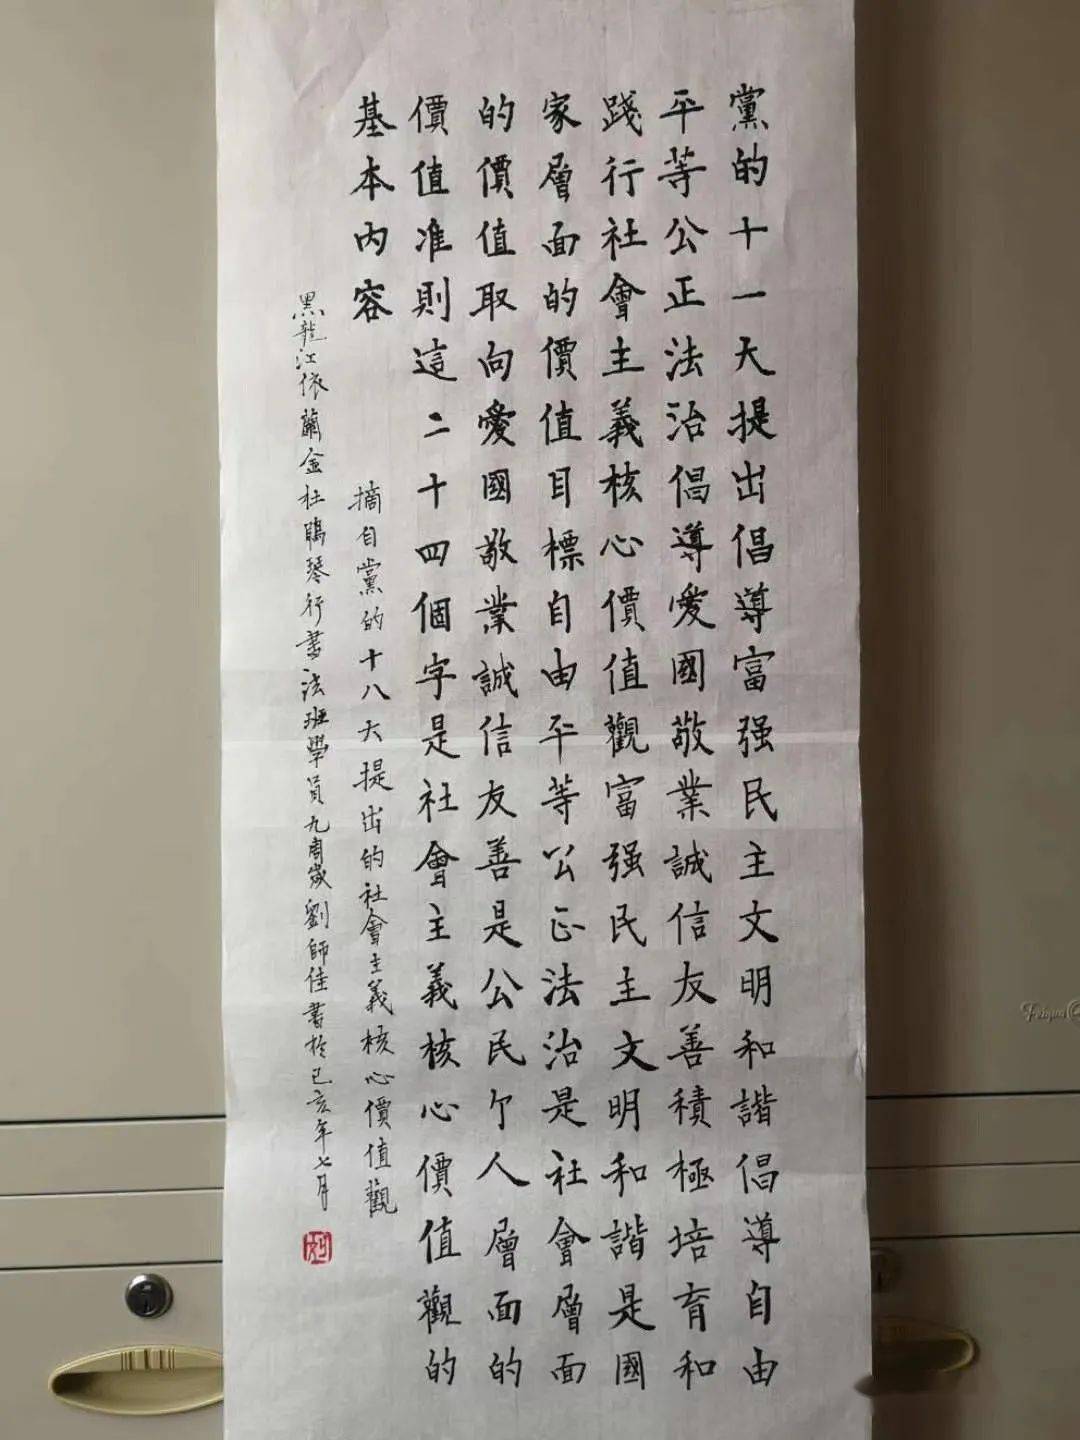 黨的十一大提出倡導富强民主文明和諧倡導自由
平等公正法治倡導愛國敬業誠信友善積極培育和
踐行社會主義核心價值觀富强民主文明和諧是國
家層面的價值目標自由平等公正法治是社會層面
的價值取向愛國敬業誠信友善是公民个人層面的
價值准則這二十四個字是社會主義核心價值觀的
基本内容
摘自黨的十八大提出的社會主義核心價值觀
黑龍江依蘭金杜鵑琴行書法班學員九周歲劉師佳書於己亥年七月